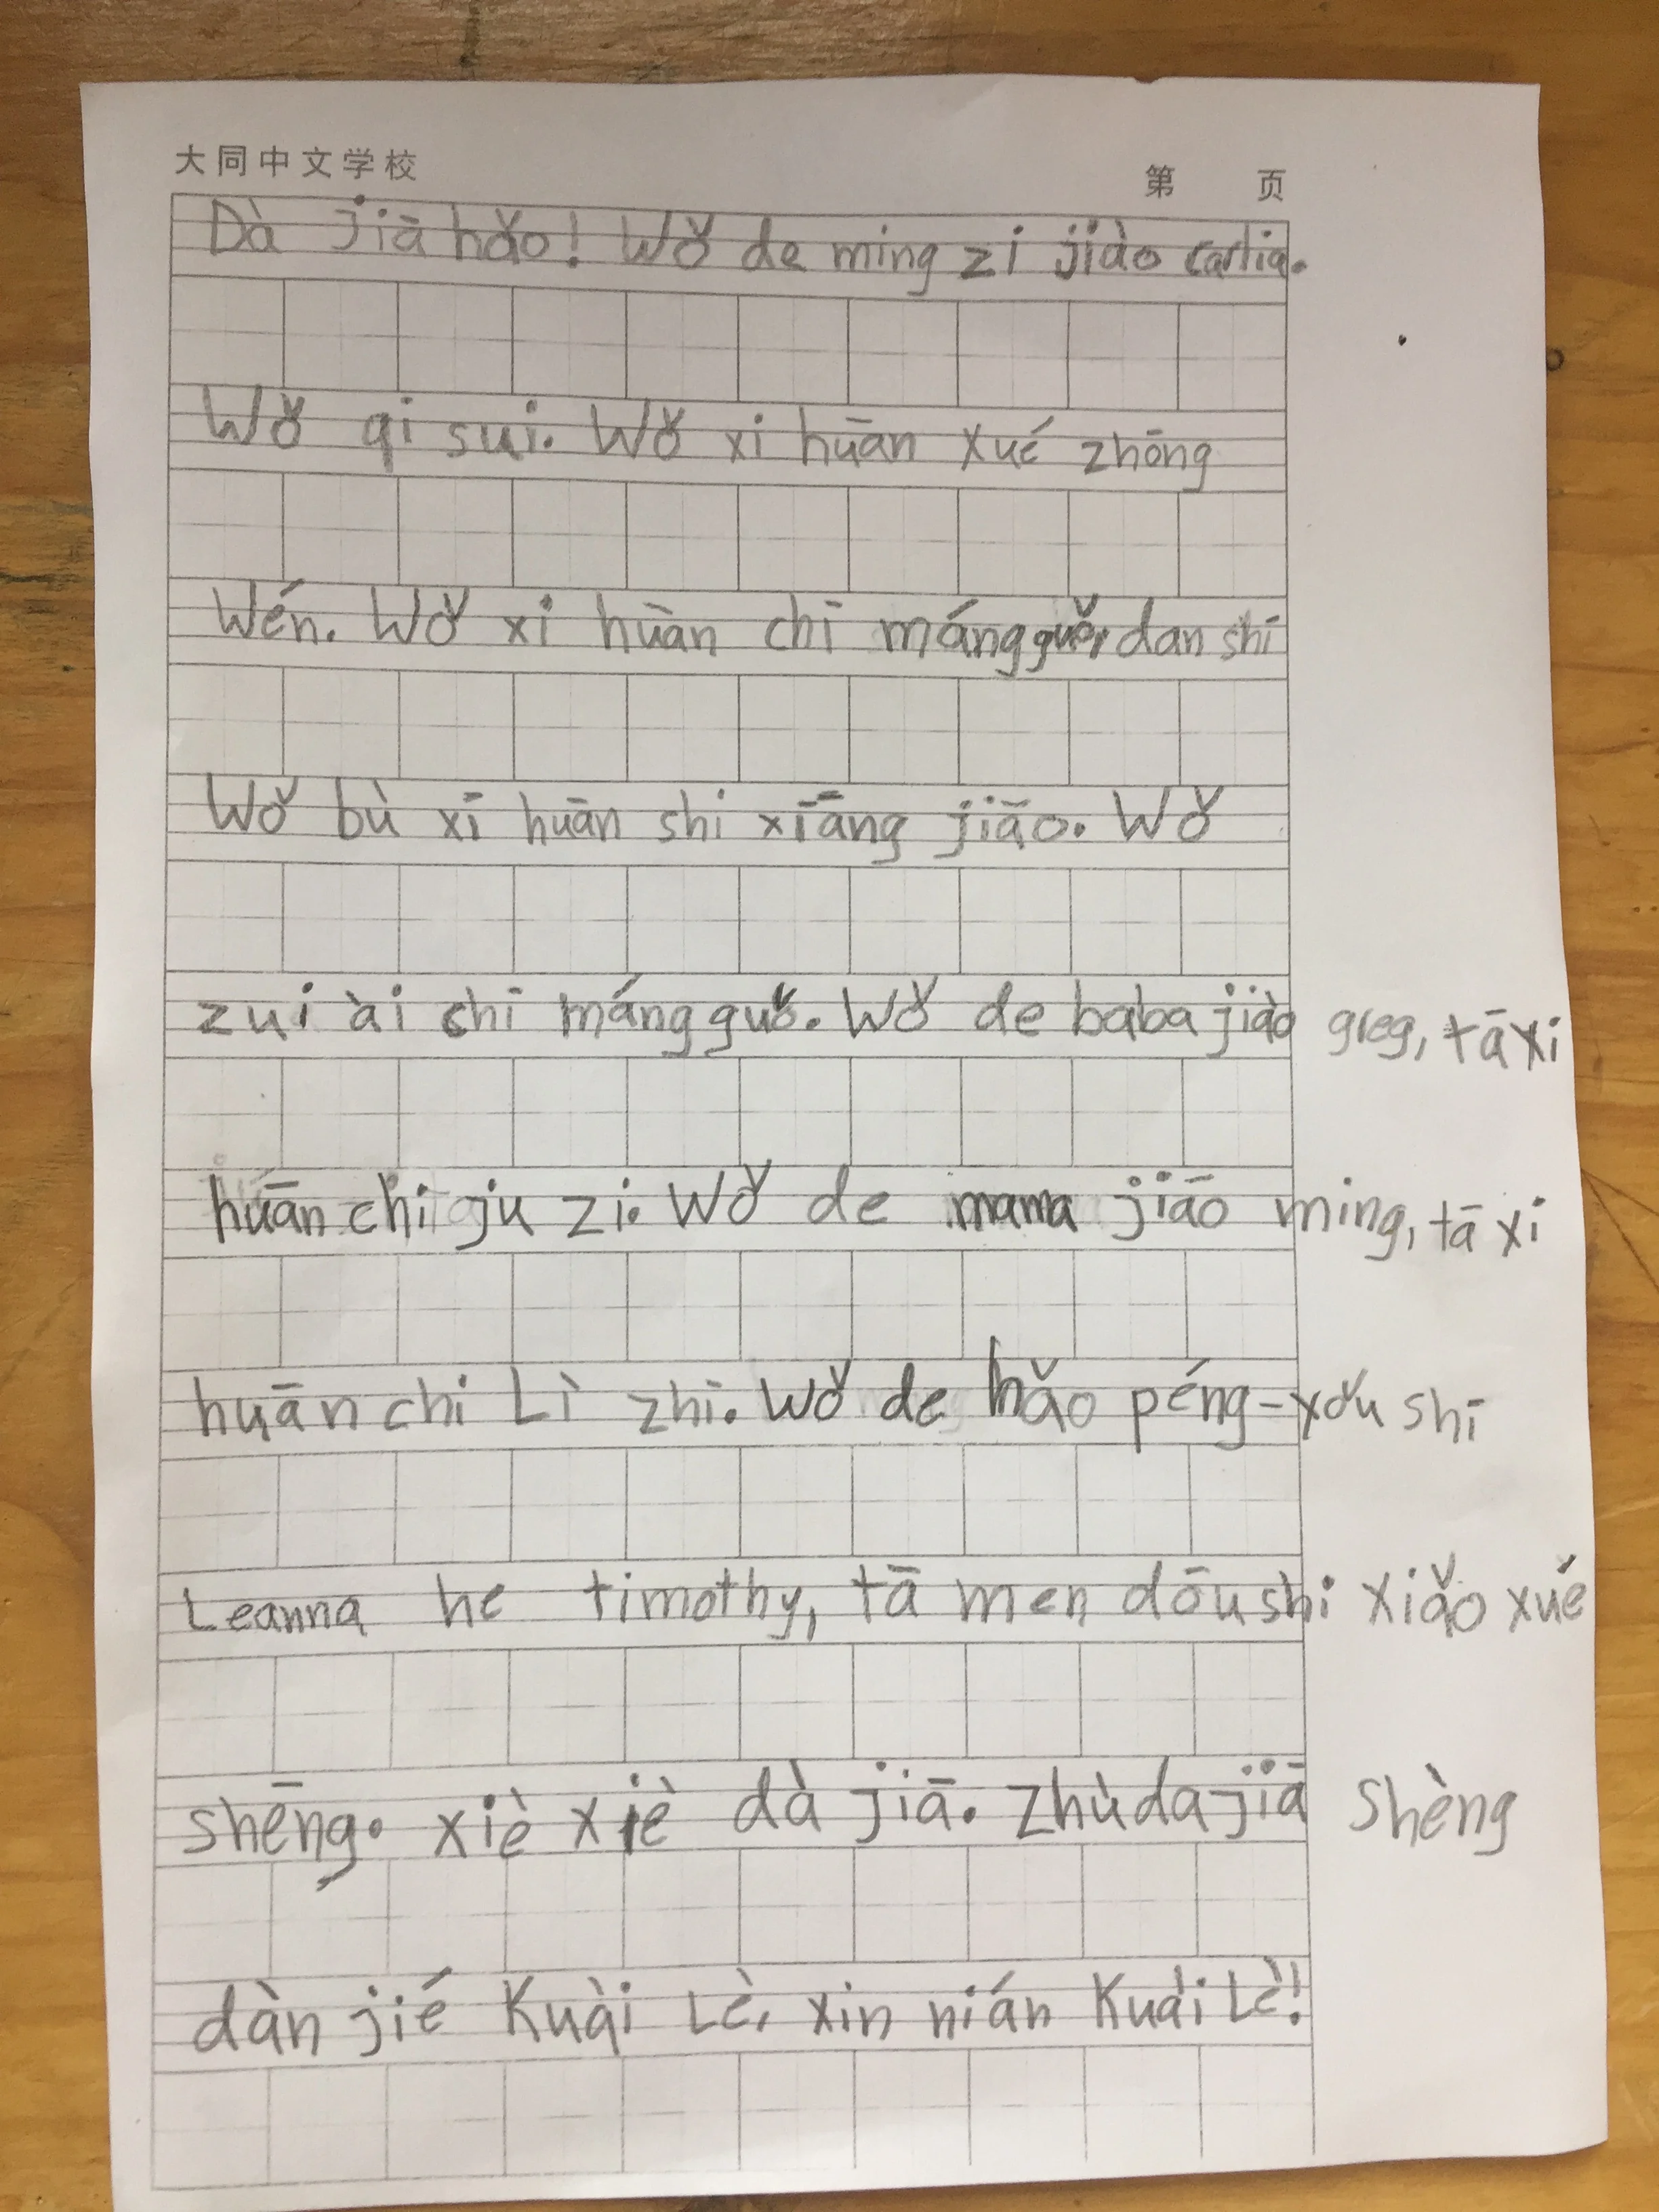 大同中文学校
第 页
Dà jiā hǎo! Wǒ de ming zi jiào carlia.
Wǒ qi sui. Wǒ xi huān xué zhōng
Wén. Wǒ xi hùan chī mángguǒ, dan shī
Wǒ bù xī huān shi xiāng jiāo. Wǒ
zui ài chī mángguǒ. Wǒ de baba jiào greg, tā xi
huān chi ju zi. Wǒ de mama jiāo ming, tā xi
huān chi Lì zhī. Wǒ de hǎo péng-yǒu shī
Leanna he timothy, tā men dōu shi xiǎo xué
shēng. xiè xiè dà jiā. Zhù da jiā shèng
dàn jié Kuài Lè, xin nián Kuài Lè!